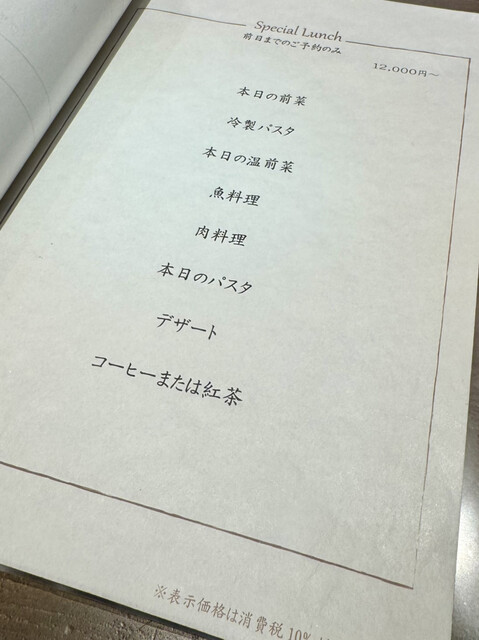 Special Lunch
前日までのご予約のみ
12,000円～
本日の前菜
冷製パスタ
本日の温前菜
魚料理
肉料理
本日のパスタ
デザート
コーヒーまたは紅茶
※表示価格は消費税10%